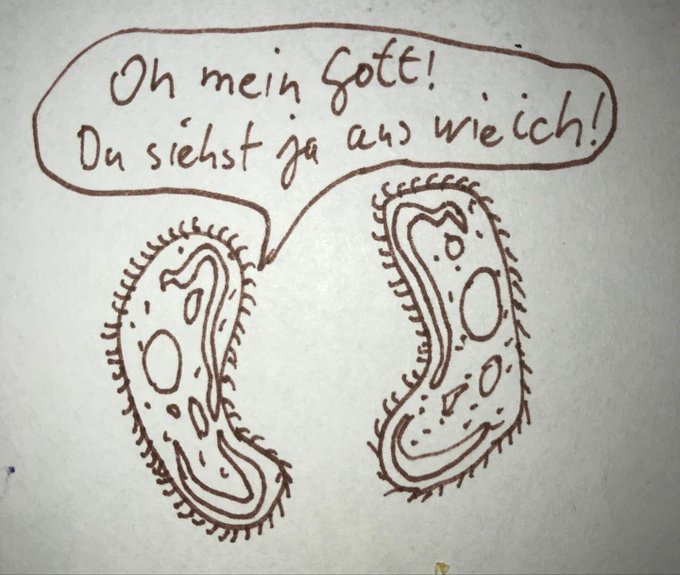 Oh mein Gott!
Du siehst ja aus wie ich!